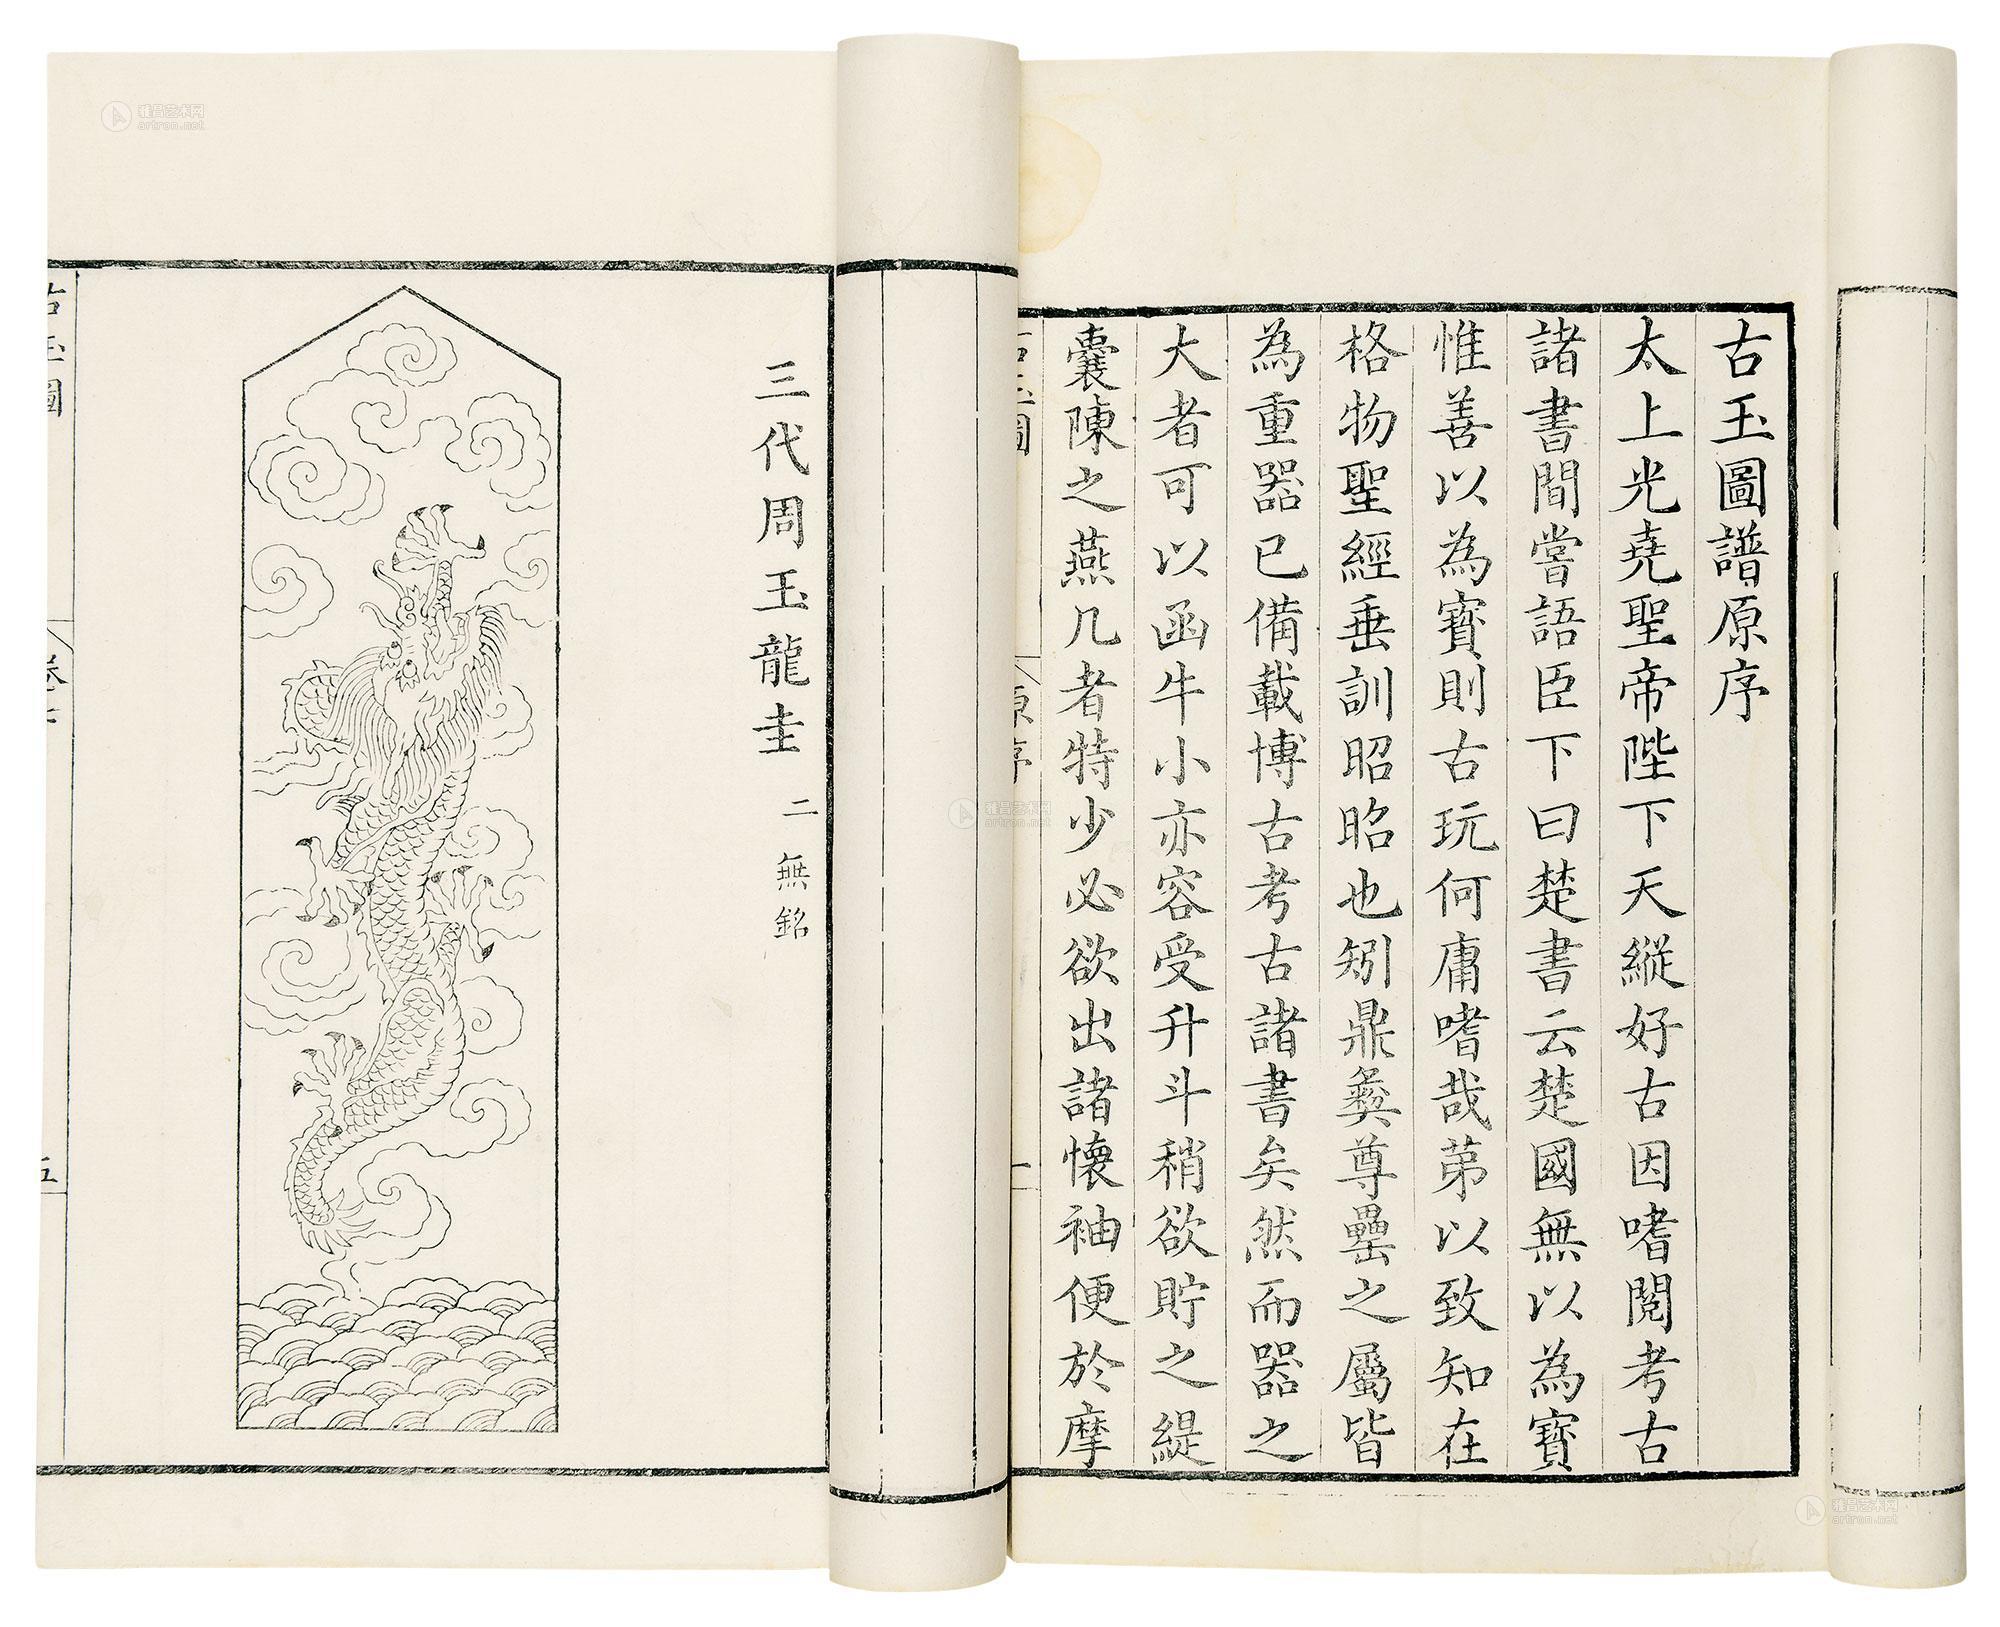 古玉圖譜原序
太上光堯聖帝陛下天縱好古因嗜閱考古
諸書間嘗語臣下曰楚書云楚國無以為寶
惟善以為寶則古玩何庸嗜哉苐以致知在
格物聖經垂訓昭昭也矧鼎彝尊罍之屬皆
為重器已備載博古考古諸書矣然而器之
大者可以函牛小亦容受升斗稍欲貯之緹
囊陳之燕几者特少必欲出諸懷袖便於摩
古玉圖
原序
一
三代周玉龍圭 二 無銘
古玉圖
卷七
五
雅昌艺术网
artron.net
雅昌艺术网
artron.net
雅昌艺术网
artron.net